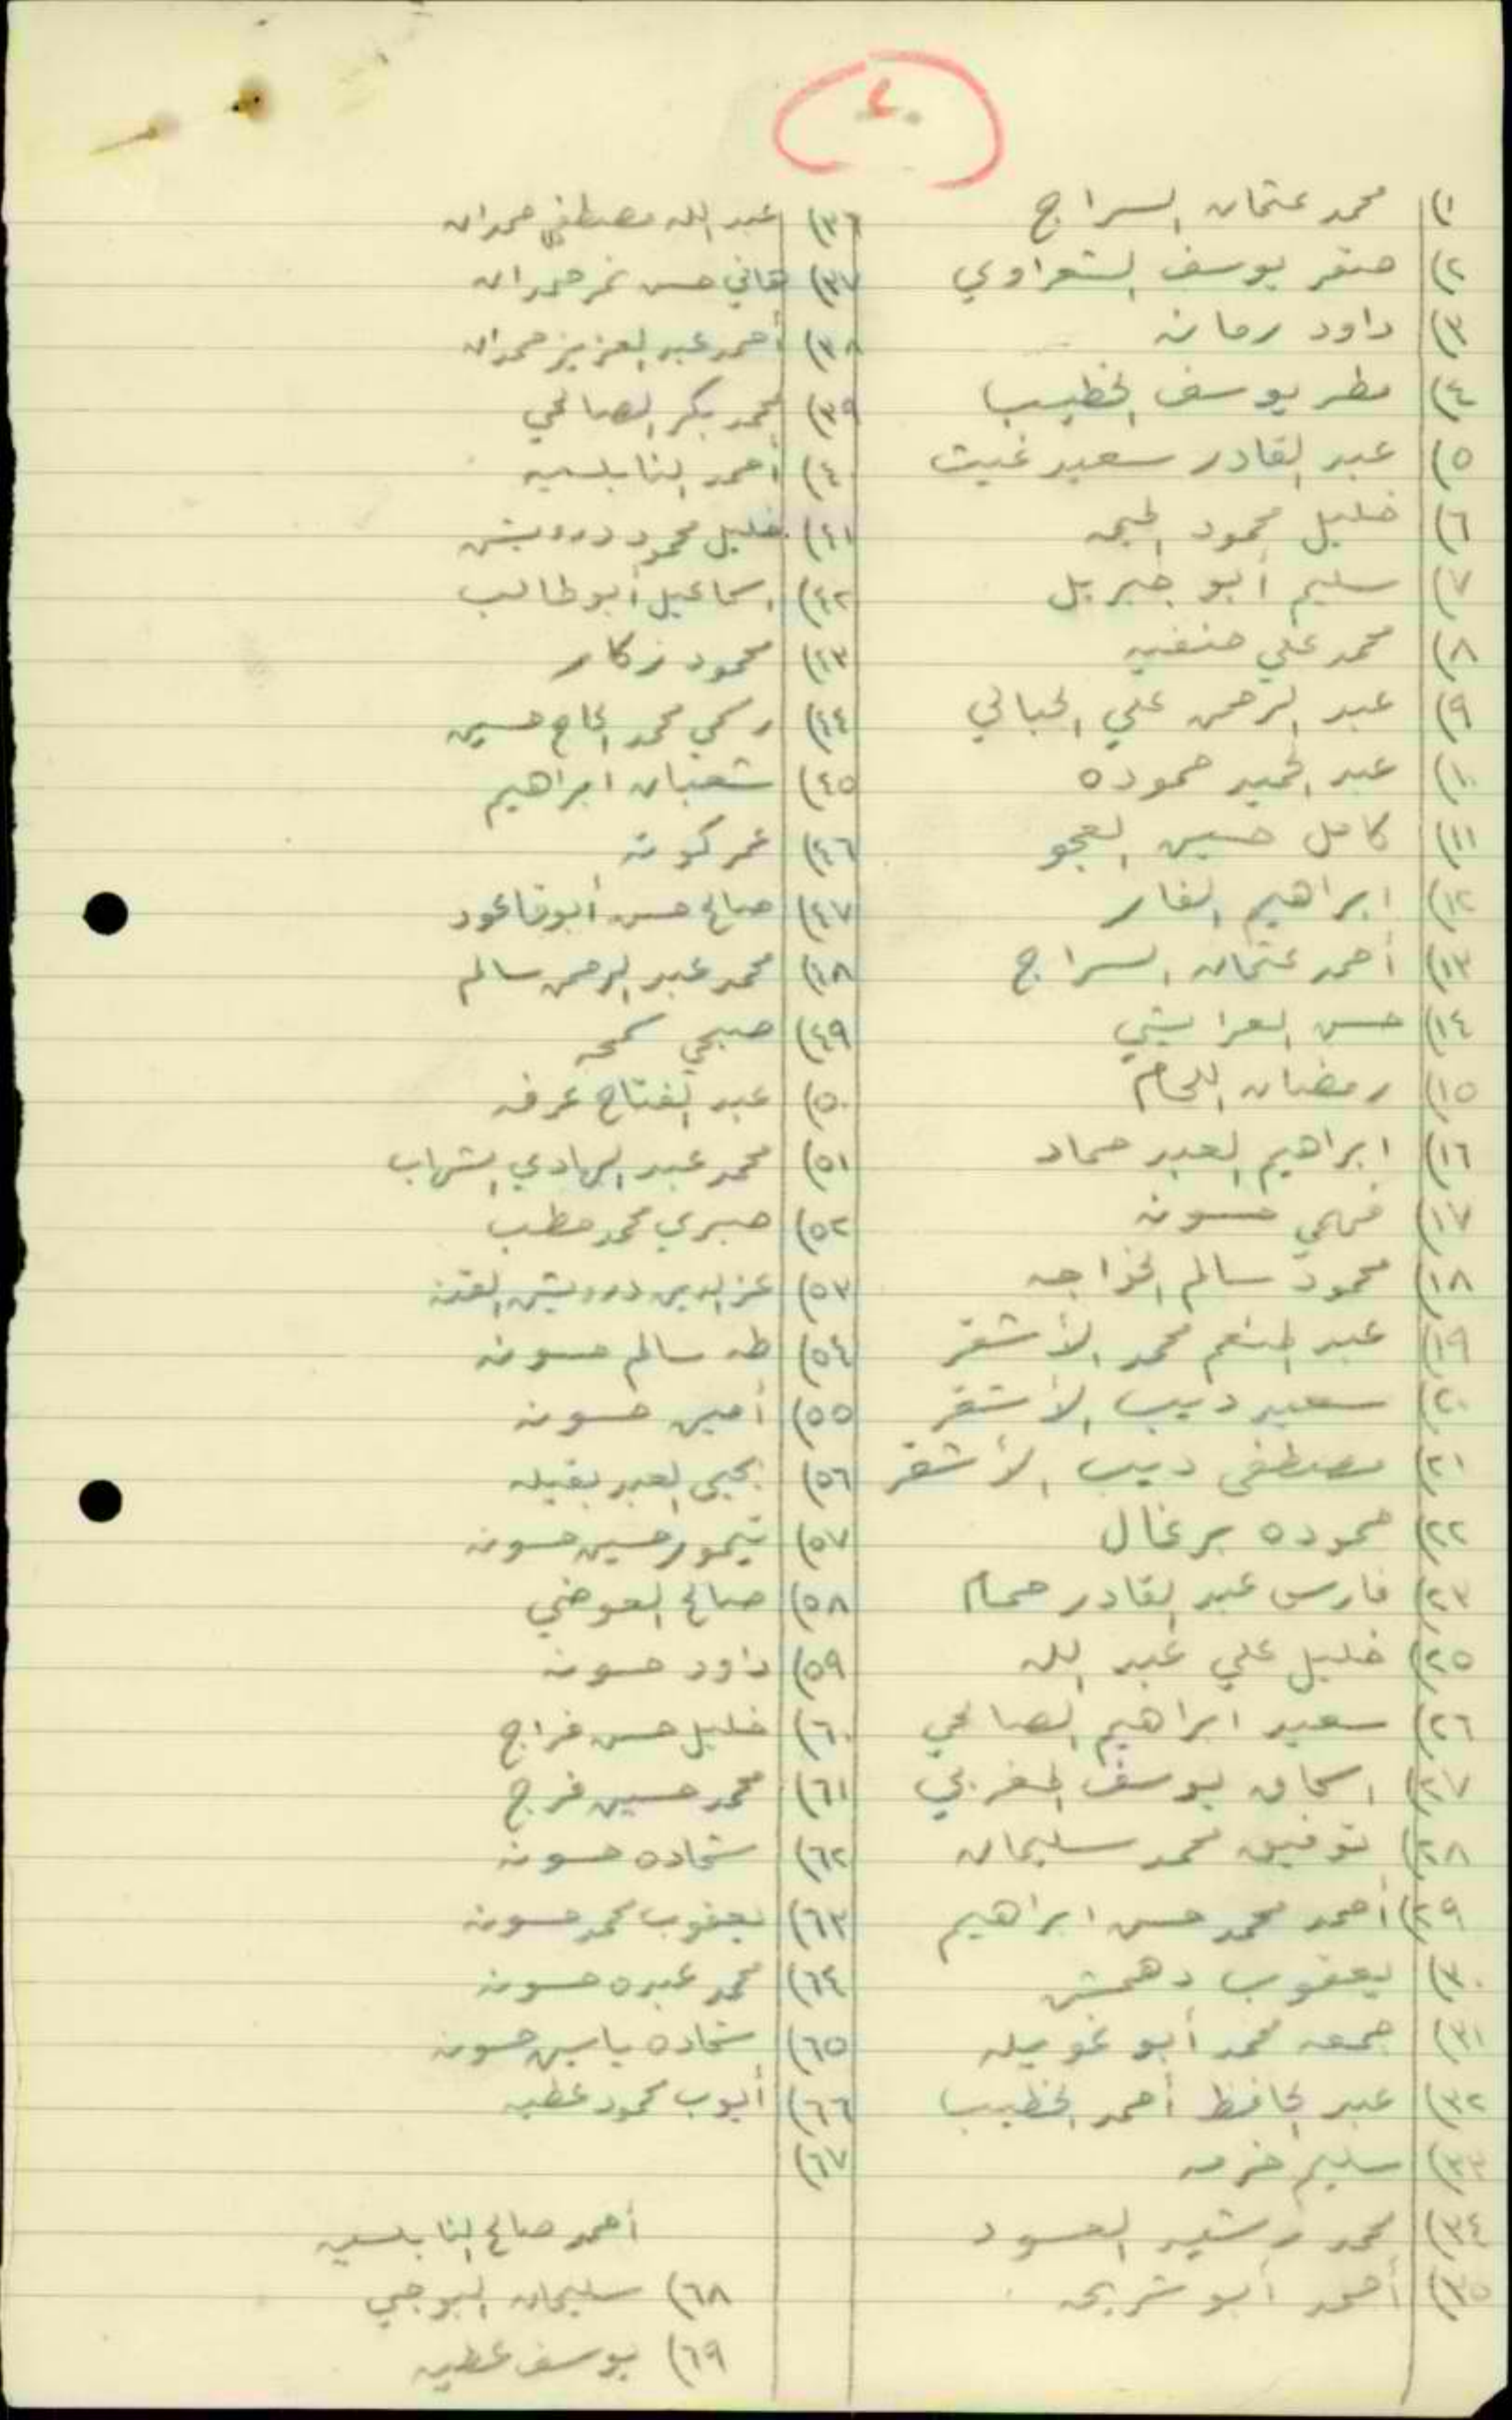 ١) محمد عثمان السراج
٢) صقر يوسف الشعراوي
٣) داود رمانه
٤) مطر يوسف الخطيب
٥) عبد القادر سعيد غيث
٦) خليل محمود
٧) سليم أبو جبريل
٨) محمد علي حنفيه
٩) عبد الرحمن علي الجبالي
١٠) عبد الحميد حموده
١١) كامل حسين العجو
١٢) ابراهيم الفار
١٣) أحمد عثمان السراج
١٤) حسن العرايشي
١٥) رمضان اللحام
١٦) ابراهيم العبد حماد
١٧) فهمي حسونه
١٨) محمود سالم الخواجه
١٩) عبد المنعم محمد الأشقر
٢٠) سعيد ديب الأشقر
٢١) مصطفى ديب الأشقر
٢٢) حموده برغال
٢٣) فارس عبد القادر حمام
٢٥) خليل علي عبد الله
٢٦) سعيد ابراهيم الصالحي
٢٧) اسحاق يوسف المغربي
٢٨) توفيق محمد سليمان
٢٩) أحمد محمد حسن ابراهيم
٣٠) يعقوب دهمش
٣١) جمعه محمد أبو غويله
٣٢) عبد الحافظ أحمد الخطيب
٣٣) سليم خرمه
٣٤) محمد رشيد العسود
٣٥) أحمد أبو شريحه
٣٦) عبد الله مصطفى حمدان
٣٧) هاني حسن نمر حمدان
٣٨) أحمد عبد العزيز حمدان
٣٩) محمد بكر الصالحي
٤٠) أحمد النابلسيه
٤١) خليل محمود درويش
٤٢) اسماعيل أبو طالب
٤٣) محمود زكار
٤٤) رسمي محمد الحاج حسين
٤٥) شعبان ابراهيم
٤٦) عمر كونه
٤٧) صالح حسن أبو قاعود
٤٨) محمد عبد الرحمن سالم
٤٩) صبحي كمحه
٥٠) عبد الفتاح عرفه
٥١) محمد عبد الهادي الشهاب
٥٢) صبري محمد مطب
٥٣) عز الدين درويش القدنه
٥٤) طه سالم حسونه
٥٥) أمين حسونه
٥٦) يحيى العبد بقيله
٥٧) تيمور حسين حسونه
٥٨) صالح العوضي
٥٩) داود حسونه
٦٠) خليل حسن فراج
٦١) محمد حسين فرج
٦٢) شحاده حسونه
٦٣) يعقوب محمد حسونه
٦٤) محمد عبده حسونه
٦٥) شحاده ياسين حسونه
٦٦) أيوب محمود عطيه
٦٧)
أحمد صالح النابلسيه
٦٨) سليمان البوجي
٦٩) يوسف عطيه